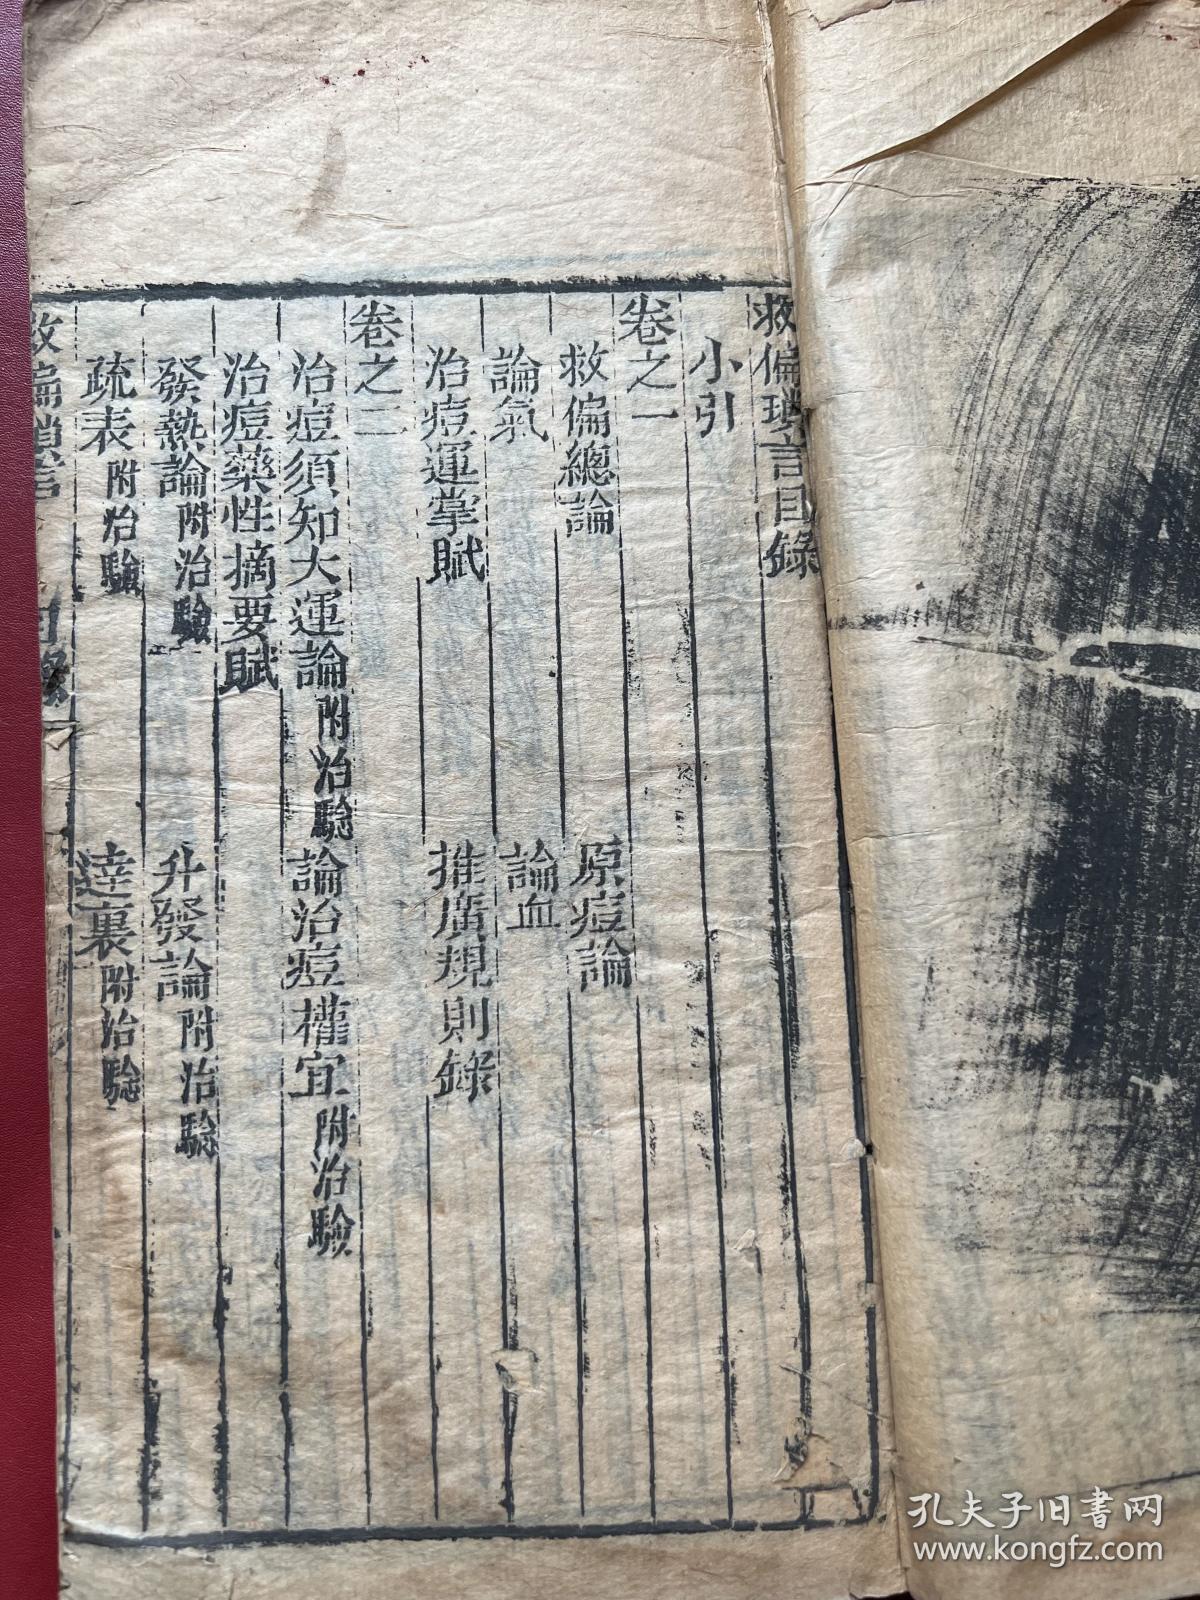 救偏瑣言目錄
小引
卷之一
救偏總論　原痘論
論氣　論血
治痘運掌賦　推廣規則錄
卷之二
治痘須知大運論附治驗　論治痘權宜附治驗
治痘藥性摘要賦
發熱論附治驗　升發論附治驗
疏表附治驗　達裏附治驗
救偏瑣言
目錄
孔夫子旧书网
www.kongfz.com